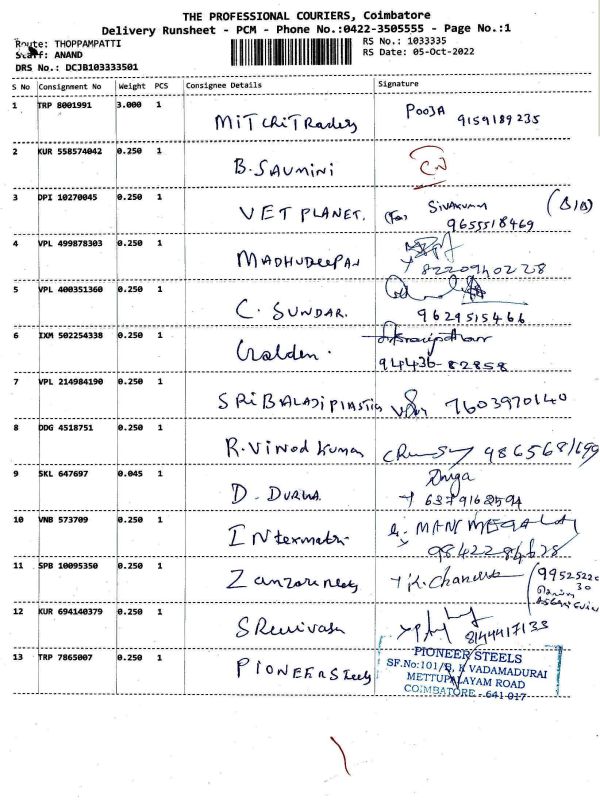 THE PROFESSIONAL COURIERS, Coimbatore
Delivery Runsheet - PCM - Phone No.:0422-3505555 - Page No.:1
Route: THOPPAMPATTI
RS No.: 1033335
Staff: ANAND
RS Date: 05-Oct-2022
DRS No.: DCJB103333501
S No Consignment No Weight PCS Consignee Details Signature
1 TRP 8001991 3.000 1 MITCHITRaders POOJA 9159189235
2 KUR 558574042 0.250 1 B. SAUMINI
3 DPI 10270045 0.250 1 VET PLANET. (For) SIVAKUMAR 9655518469
4 VPL 499878303 0.250 1 MADHUDEEPAN 8220940228
5 VPL 400351360 0.250 1 C. SUNDAR. 9629515466
6 IXM 502254338 0.250 1 Golden. 94436-82858
7 VPL 214984190 0.250 1 SRIBALAJIPLASTICS 7603970140
8 DDG 4518751 0.250 1 R. Vinod Kumar
9 SKL 647697 0.045 1 D. DURGA. Durga 6379168594
10 VNB 573709 0.250 1 INtermetri MANIMEGALAI 9842284628
11 SPB 10095350 0.250 1 K. Chandra
12 KUR 694140379 0.250 1 SRenivasa 8144417133
13 TRP 7865007 0.250 1 PIONEER Steels
PIONEER STEELS
SF.No:101/B, K VADAMADURAI
METTUPALAYAM ROAD
COIMBATORE - 641 017